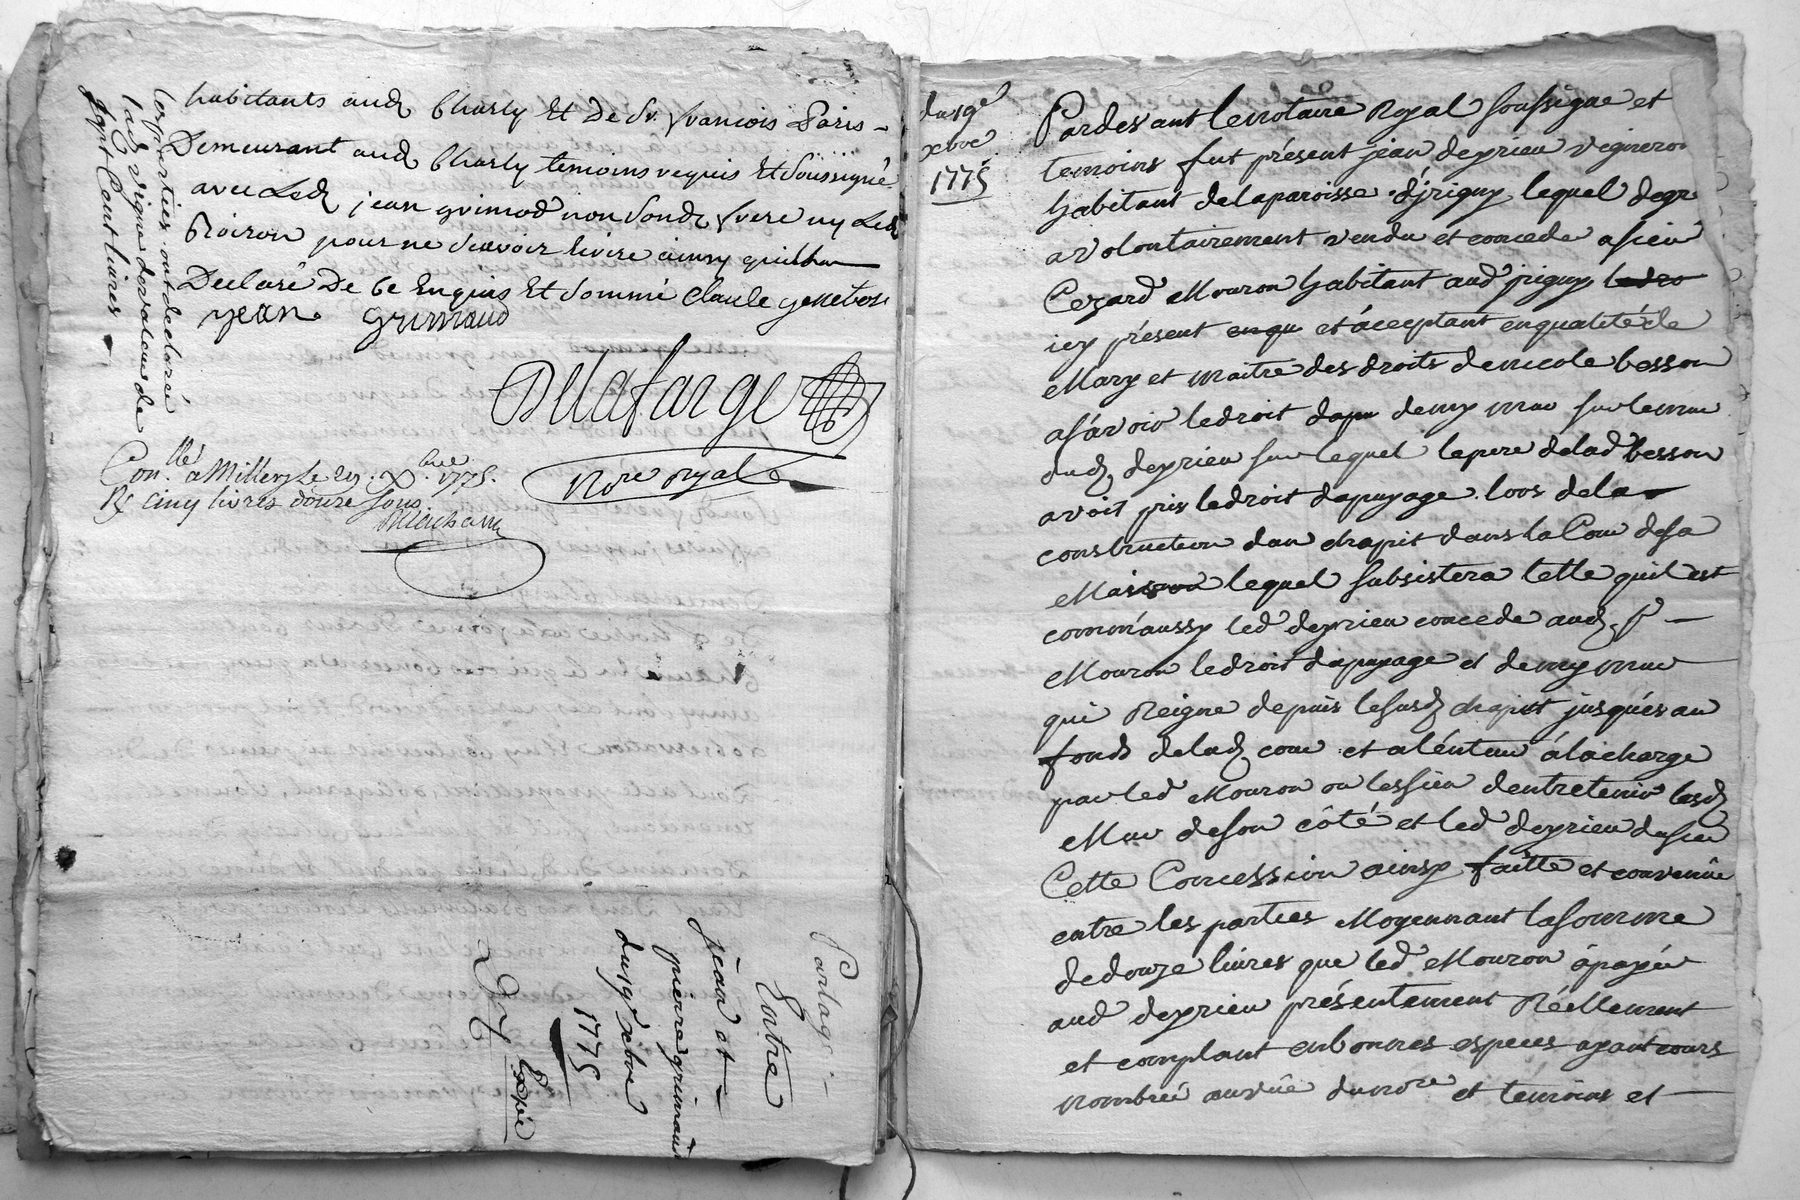 habitants aud Charly Et De Sr. francois Paris
Demeurant aud Charly temoins requis Et Soussignés
avec Led jean grimod non Sond frere ny Led
Poiron pour ne Scavoir Ecrire ainsy quil ont
Declaré De Ce Enquis Et Sommé Claude
jean Grimaud
Delafarge
Nore royal
les parties ont declaré
lad vigne de valeur de
Sept Cent livres
Con.llé a Millery Le 29 Xbre 1775.
R. cinq livres douze sous
Partage
Entre
jean et
pierre grimaud
du 19e xbre
1775
Expée
du 19e
xbre
1775
Pardevant le notaire Royal soussigné et
temoins fut présent jean deprieu vigneron
habitant de la paroisse d'jrigny lequel de gr
a volontairement vendu et concede a sieur
Cezard Mouron habitant aud jrigny
icy présent et àcceptant en qualité de
Mary et maitre des droits de nicole besson
a sàvoir le droit dapu demy mur sur le mur
dud deprieu sur lequel le pere de lad besson
avoit pris le droit dapuyage lors de la
construction dun chapit dans la Cour de sa
Maison lequel subsistera telle quil est
comm'aussy led deprieu concede aud. Sr
Mouron le droit dapuyage et demy mur
qui Reigne depuis le susd chapit jusqués au
fond de lad cour et àla charge
par led Mouron ou les sien d'entretenir lesd
Mur de son côté et led deprieu du sien
Cette Concession ainsy faitte et convenüe
entre les parties Moyennant la somme
de douze livres que led Mouron à payée
aud deprieu présentement Réellement
et comptant en bonnes especes ayant cours
nombrée au vüe du nore et temoins et